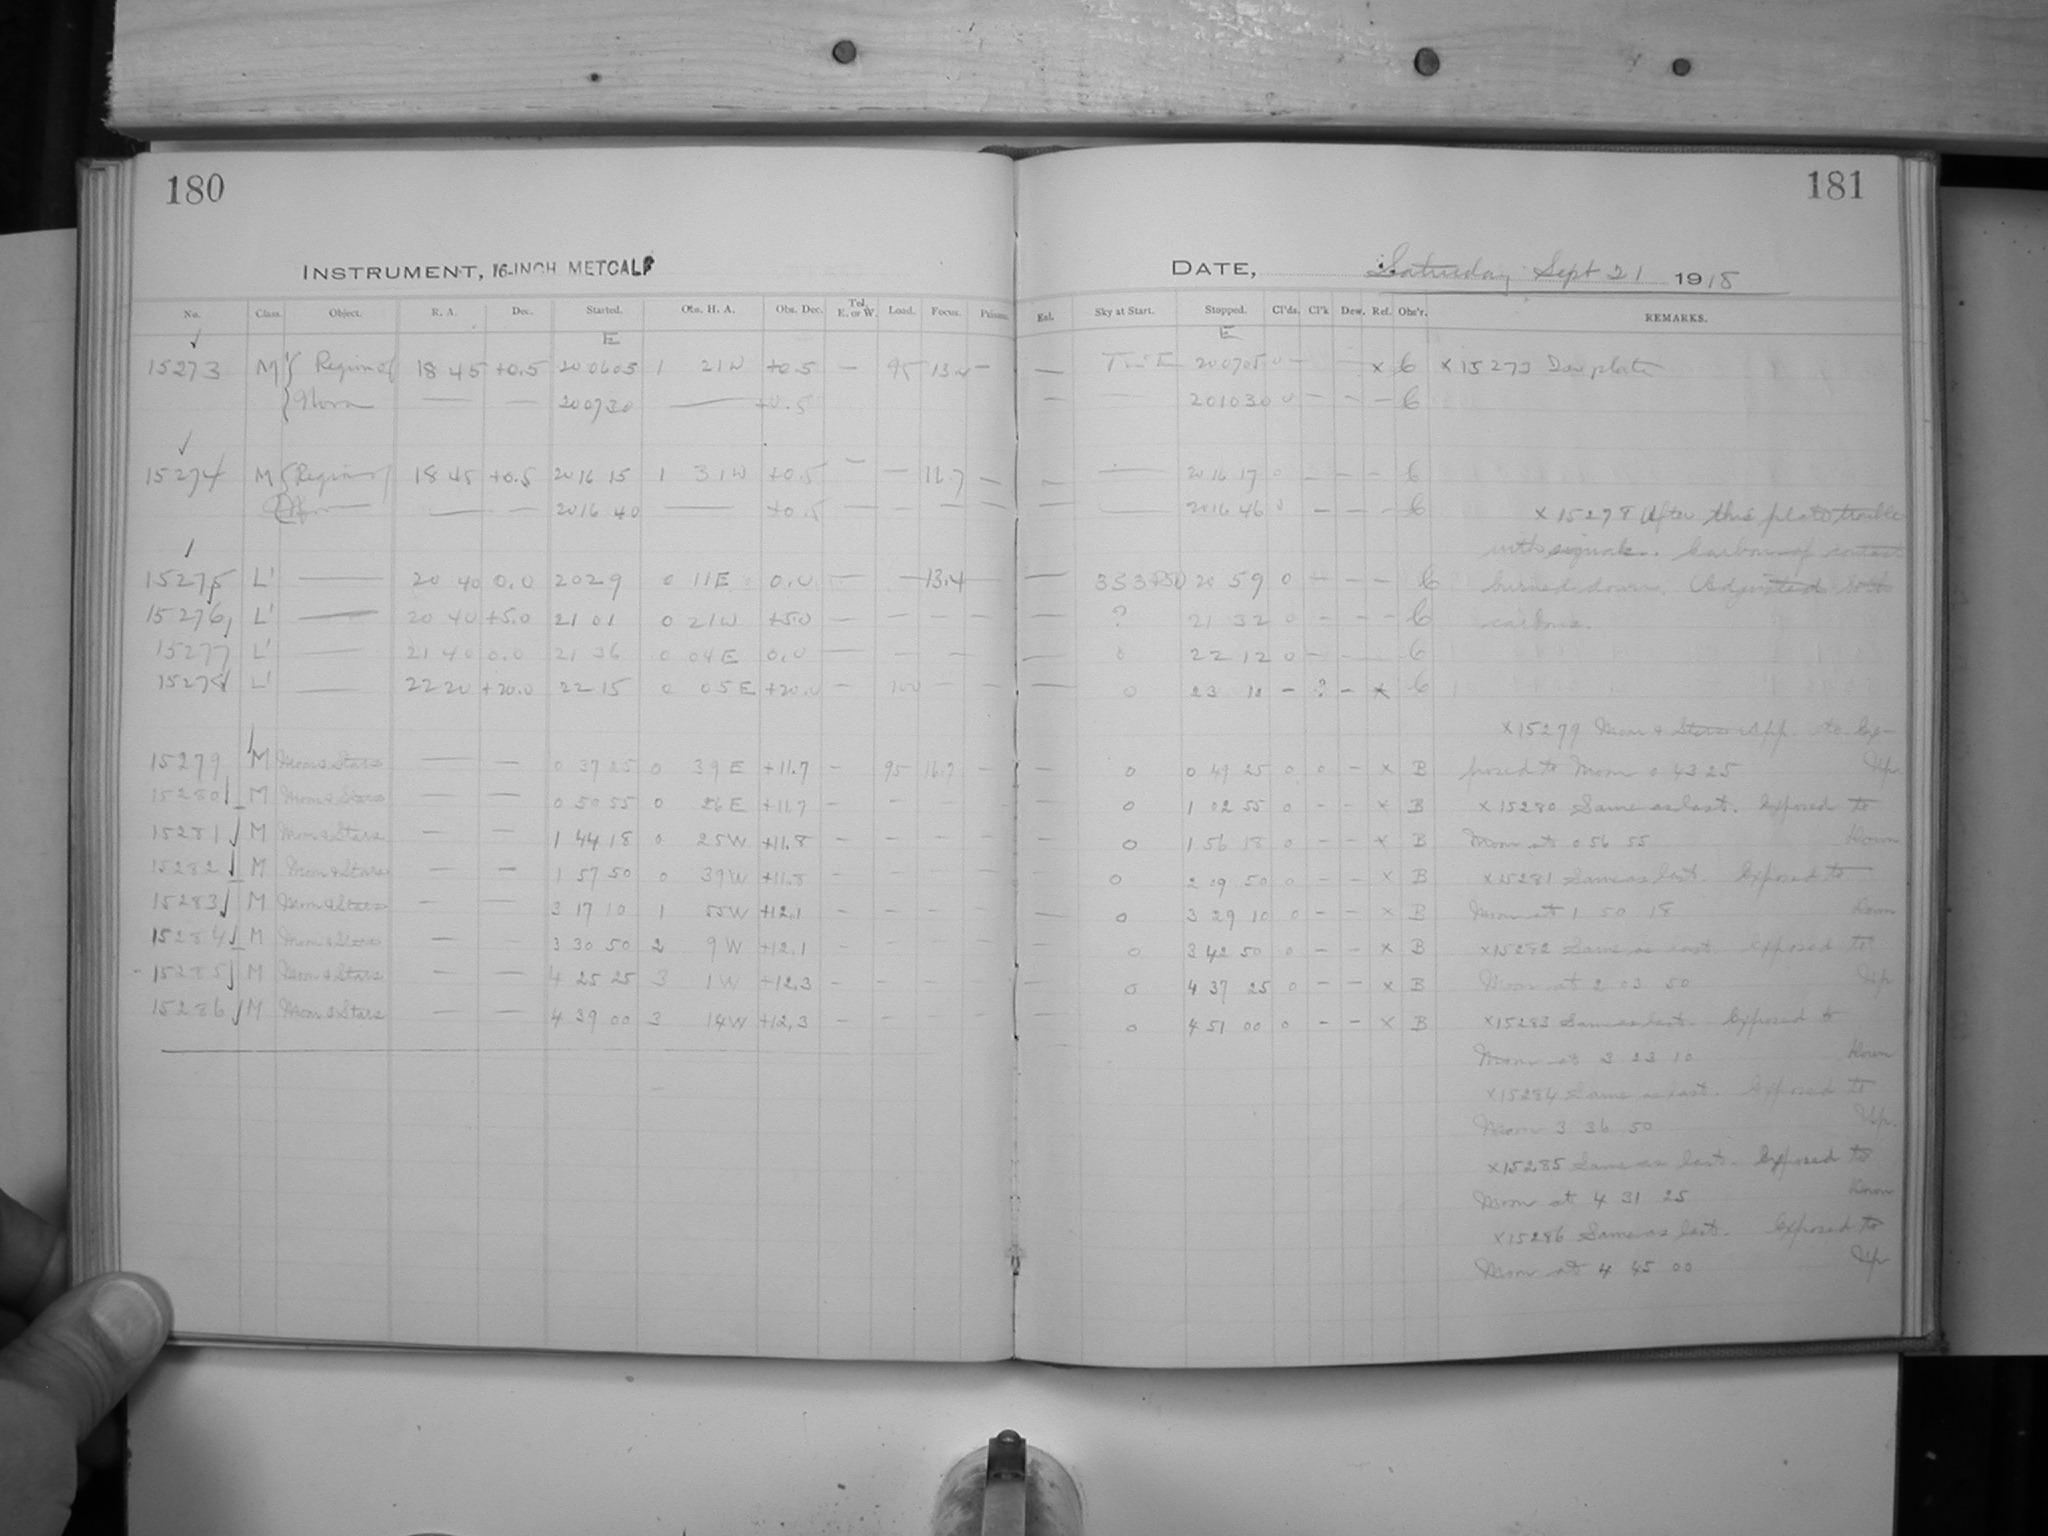 180
INSTRUMENT, 16-INCH METCALF
No. Class. Object. R. A. Dec. Started. Obs. H. A. Obs. Dec. Tel. E. or W. Load. Focus. Prisms.
E
15273 M' { Region of 18 45 +0.5 20 06 05 1 21 W +0.5 — 95 —
Nova — — 20 07 30 — +0.5
15274 M { Region of 18 45 +0.5 20 16 15 1 31 W +0.5 — — —
— — 20 16 40 — +0.5 — — — —
15275 L' — 20 40 0.0 20 29 0 11 E 0.0 — — 13.4 —
15276 L' — 20 40 +5.0 21 01 0 21 W +5.0 — — — —
15277 L' — 21 40 0.0 21 36 0 04 E 0.0 — — — —
15278 L' — 22 20 +20.0 22 15 0 05 E +20.0 — 100 — —
15279 M Moon & Stars — — 0 37 25 0 39 E +11.7 — 95 16.7 —
15280 M Moon & Stars — — 0 50 55 0 26 E +11.7 — — — —
15281 M Moon & Stars — — 1 44 18 0 25 W +11.8 — — — —
15282 M Moon & Stars — — 1 57 50 0 39 W +11.8 — — — —
15283 M Moon & Stars — — 3 17 10 1 55 W +12.1 — — — —
15284 M Moon & Stars — — 3 30 50 2 9 W +12.1 — — — —
15285 M Moon & Stars — — 4 25 25 3 1 W +12.3 — — — —
15286 M Moon & Stars — — 4 39 00 3 14 W +12.3 — — — —
181
DATE, Saturday, Sept 21 1918
Enl. Sky at Start. Stopped. Cl'ds. Cl'k Dew. Ref. Obs'r. REMARKS.
E
— 20 07 05 0 — — x C x 15273 Dew plate
— — 20 10 30 0 — — — C
— — 20 16 17 0 — — — C
— — 20 16 46 0 — — — C
x 15278 After this plate trouble
with signals. Carbon of contact
— 20 59 0 — — — C burned down. Adjusted both
— ? 21 32 0 — — — C carbons.
— 0 22 12 0 — — — C
— 0 23 — ? — x C
x 15279 Moon & Stars App. to Ex-
— 0 0 49 25 0 0 — x B posed to Moon 0 43 25 Up
— 0 1 02 55 0 — — x B x 15280 Same as last. Exposed to
— 0 1 56 18 0 — — x B Moon at 0 56 55 Down
0 2 09 50 0 — — x B x 15281 Same as last. Exposed to
— 0 3 29 10 0 — — x B Moon at 1 50 18 Down
0 3 42 50 0 — — x B x 15282 Same as last. Exposed to
— 0 4 37 25 0 — — x B Moon at 2 03 50 Up
0 4 51 00 0 — — x B x 15283 Same as last. Exposed to
Moon at 3 23 10 Down
x 15284 Same as last. Exposed to
Moon 3 36 50 Up.
x 15285 Same as last. Exposed to
Moon at 4 31 25 Down
x 15286 Same as last. Exposed to
Moon at 4 45 00 Up